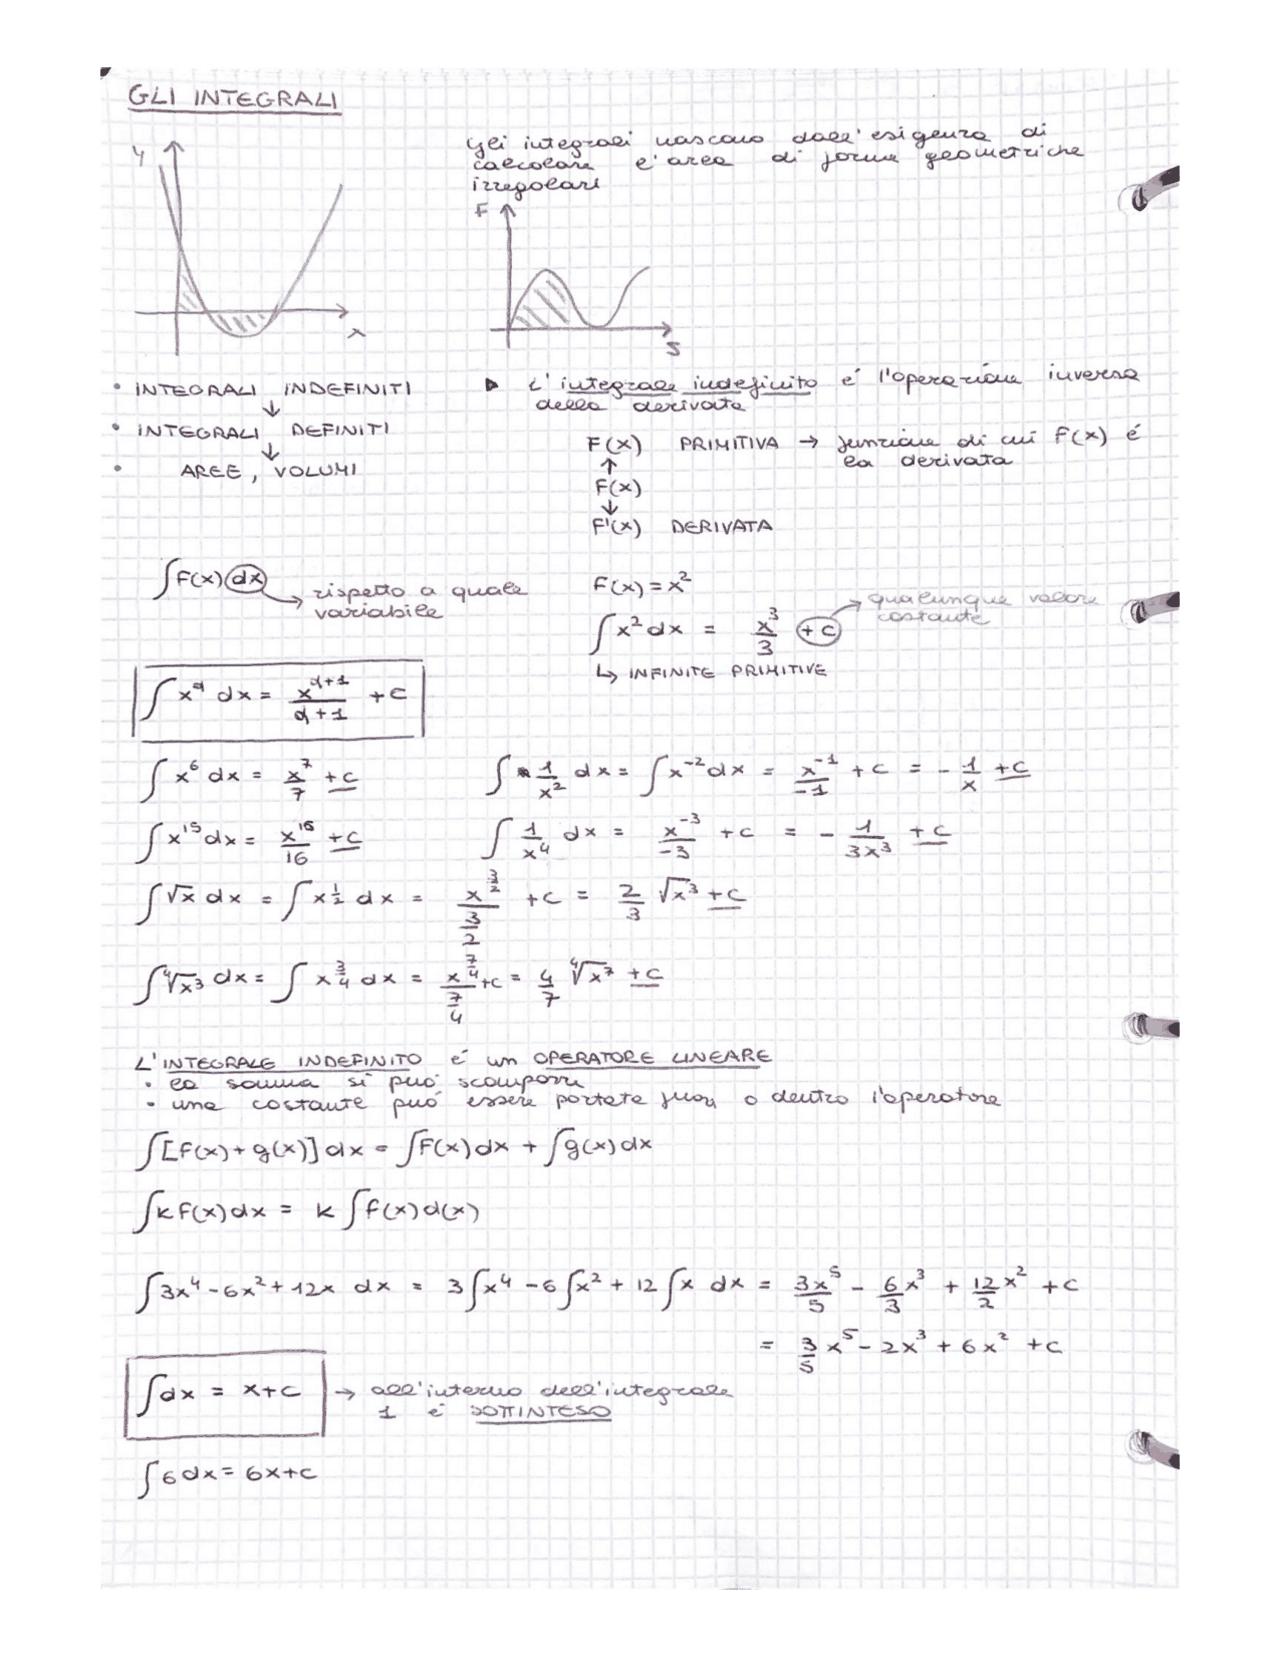 GLI INTEGRALI
gli integrali nascono dall'esigenza di
calcolare l'area di forme geometriche
irregolari
y
x
F
S
• INTEGRALI INDEFINITI
↓
• INTEGRALI DEFINITI
↓
• AREE, VOLUMI
▶ L'integrale indefinito é l'operazione inversa
della derivata
F(x) PRIMITIVA → funzione di cui F(x) é
la derivata
↑
F(x)
↓
F'(x) DERIVATA
∫F(x)dx → rispetto a quale
variabile
F(x) = x²
∫x² dx = x³/3 + c → qualunque valore
costante
↳ INFINITE PRIMITIVE
∫x^α dx = x^(α+1)/(α+1) + c
∫x⁶ dx = x⁷/7 + c
∫1/x² dx = ∫x⁻² dx = x⁻¹/-1 + c = - 1/x + c
∫x¹⁵ dx = x¹⁶/16 + c
∫1/x⁴ dx = x⁻³/-3 + c = - 1/3x³ + c
∫√x dx = ∫x^(1/2) dx = x^(3/2)/(3/2) + c = 2/3 √x³ + c
∫⁴√x³ dx = ∫x^(3/4) dx = x^(7/4)/(7/4) + c = 4/7 ⁴√x⁷ + c
L'INTEGRALE INDEFINITO é un OPERATORE LINEARE
• la somma si puó scomporre
• una costante puó essere portata fuori o dentro l'operatore
∫[F(x) + g(x)] dx = ∫F(x) dx + ∫g(x) dx
∫k F(x) dx = k ∫F(x) d(x)
∫3x⁴ - 6x² + 12x dx = 3∫x⁴ - 6∫x² + 12∫x dx = 3x⁵/5 - 6x³/3 + 12x²/2 + c
= 3/5 x⁵ - 2x³ + 6x² + c
∫dx = x + c → all'interno dell'integrale
1 é SOTTINTESO
∫6 dx = 6x + c